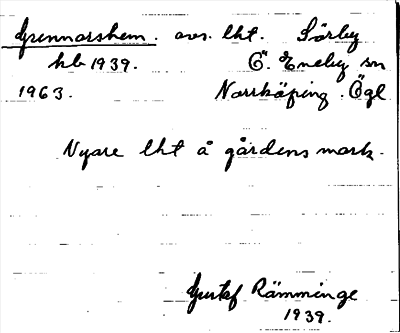 Grennarshem. avs. lht. Sörby
hb 1939. Ö. Eneby sn
1963. Norrköping. Ögl
Nyare lht å gårdens mark.
Gustaf Rämminge
1939.